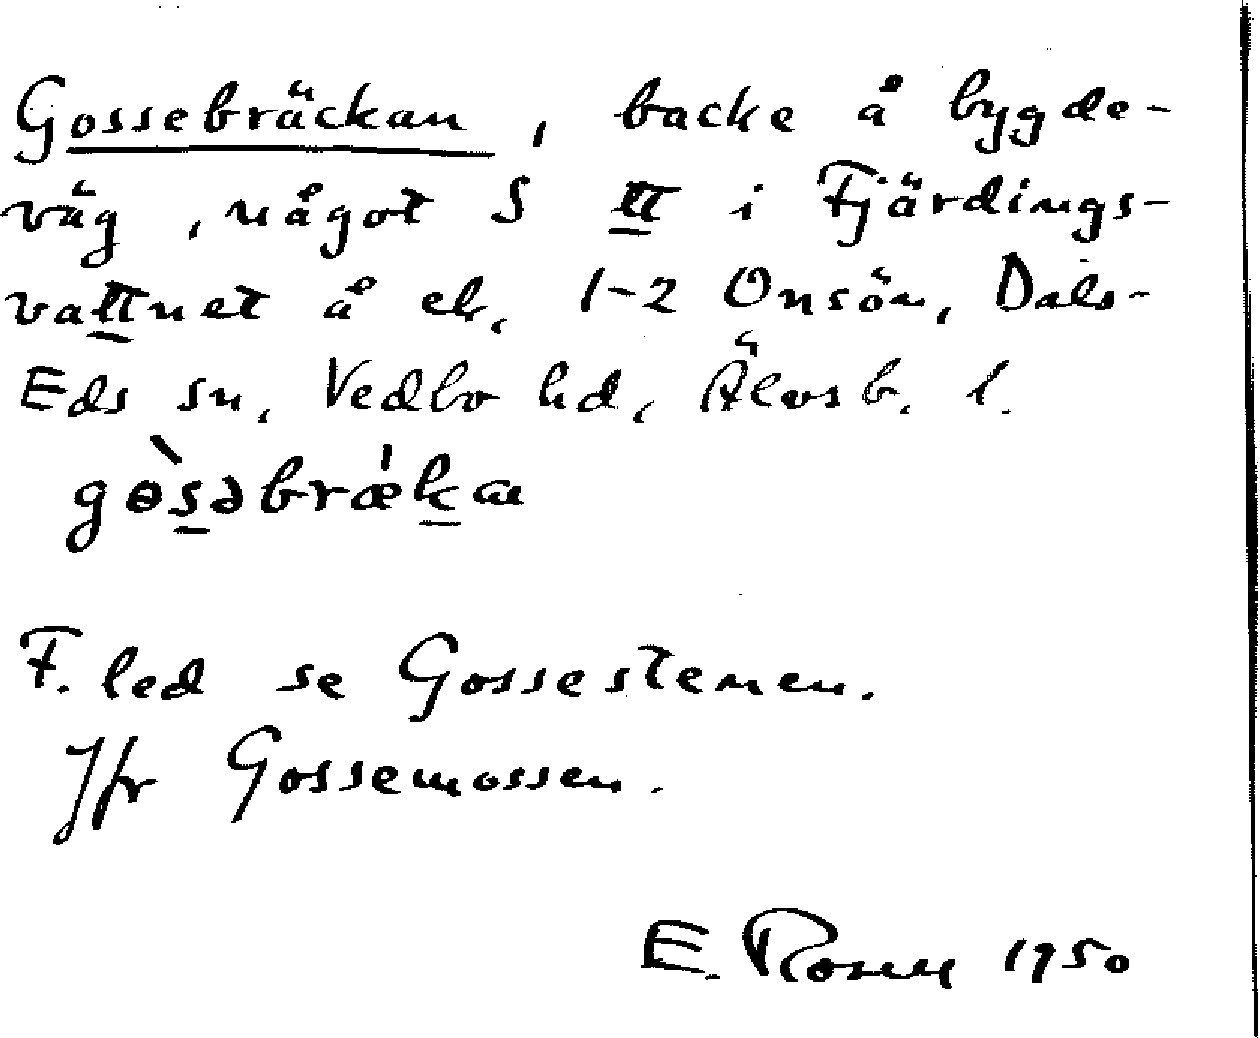 Gossebräckan, backe å bygde-
väg, något S tt i Fjärdings-
vattnet å ek. 1-2 Onsön, Dals-
Eds sn, Vedbo hd, Älvsb. l.
gɵ̀səbrǽka
F. led se Gossestenen.
Jfr Gossemossen.
E. Rosen 1950